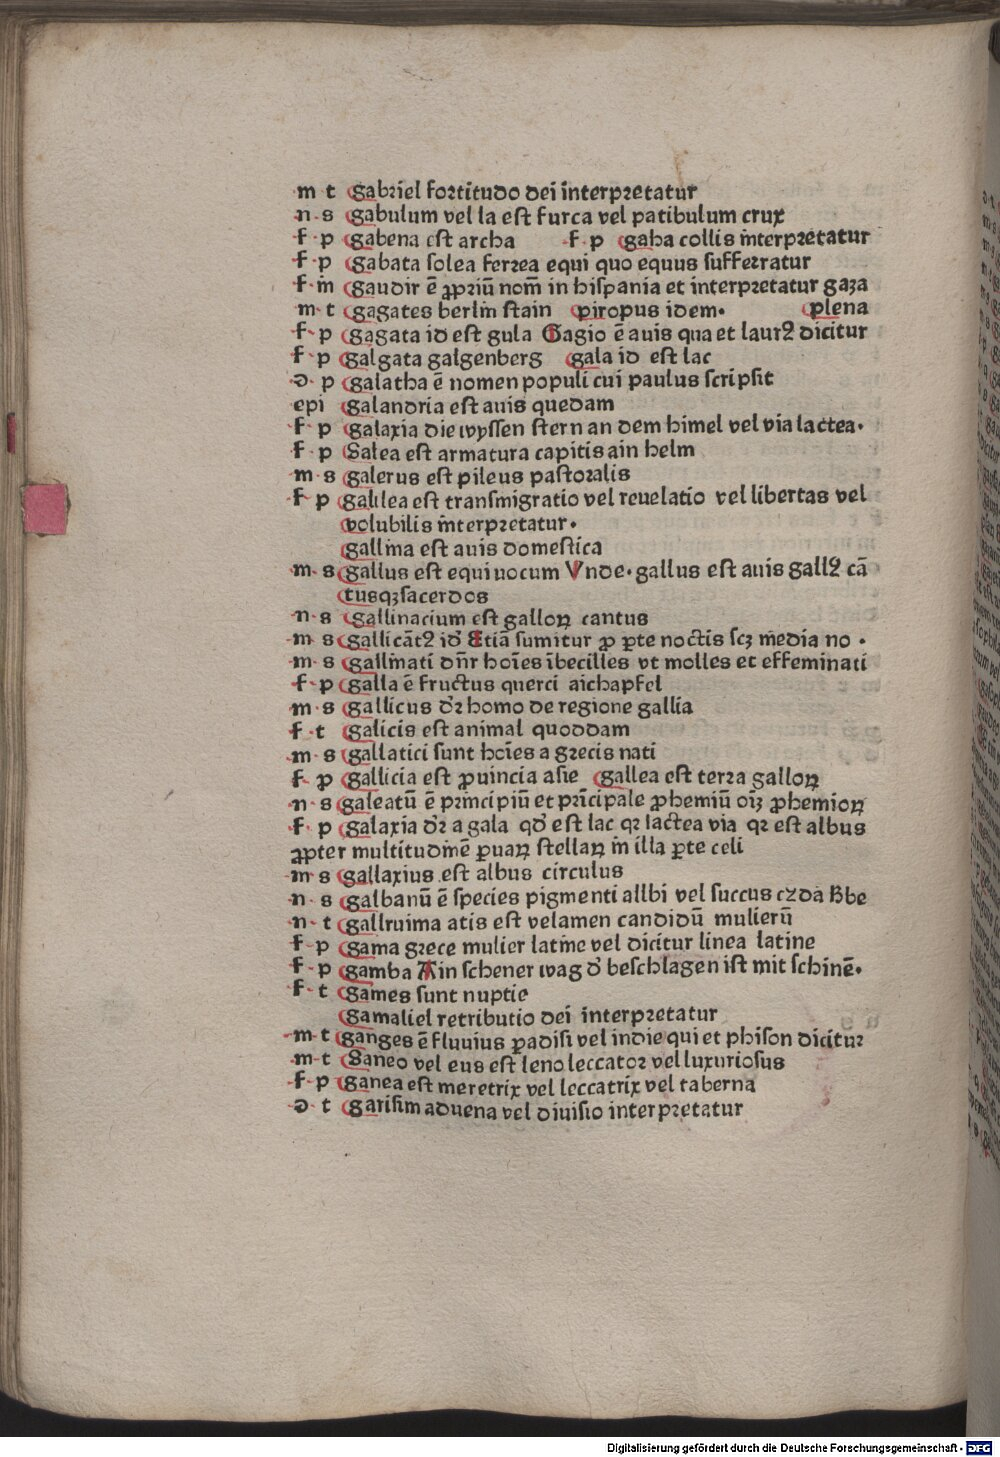 m t gabriel fortitudo dei interpretatur
n s gabulum vel la est furca vel patibulum crux
f p gabena est archa f p gaba collis īnterpretatur
f p gabata solea ferrea equi quo equus sufferratur
f m̄ gaudir ē ꝓpriū nom̄ in hispania et interpretatur gaza
m t gagates berlīn stain piropus idem· plena
f p gagata id est gula Gagio ē auis qua et laurꝰ dicitur
f p galgata galgenberg gala id est lac
ↄ p galatha ē nomen populi cui paulus scripsit
epi galandria est auis quedam
f p galaxia die wyssen stern an dem himel vel via lactea·
f p Galea est armatura capitis ain helm
m s galerus est pileus pastoralis
f p galilea est transmigratio vel reuelatio vel libertas vel
volubilis īnterpretatur·
gallīna est auis domestica
m s gallus est equiuocum Vnde· gallus est auis gallꝰ cā
tusqꝫ sacerdos
n s gallinacium est galloꝝ cantus
m s gallicātꝰ id̄ Etiā sumitur ꝓ ꝑte noctis scꝫ media no ·
m s gallīnati dn̄r hoīes ībecilles vt molles et effeminati
f p galla ē fructus querci aichapfel
m s gallicus d̄r homo de regione gallia
f t galicis est animal quoddam
m s gallatici sunt hoīes a grecis nati
f p gallicia est ꝓuincia asie gallea est terra galloꝝ
n s galeatū ē prīncipiū et prīncipale ꝓhemiū oīꝫ ꝓhemioꝝ
f p galaxia d̄r a gala qd̄ est lac qꝛ lactea via qꝛ est albus
ꝓpter multitudīnē ꝑuaꝝ stellaꝝ īn illa ꝑte celi
m s gallaxius est albus circulus
n s galbanū ē species pigmenti allbi vel succus cꝫdā
n t gallruima atis est velamen candidū mulierū
f p gama grece mulier latīne vel dicitur linea latine
f p gamba Ain schener wag d̄ beschlagen ist mit schinē·
f t games sunt nuptie
gamaliel retributio dei interpretatur
m t ganges ē fluuius ꝑadisi vel indie qui et phison dicitur
m t Ganeo vel eus est leno leccator vel luxuriosus
f p ganea est meretrix vel leccatrix vel taberna
ↄ t garisim aduena vel diuisio interpretatur
Digitalisierung gefördert durch die Deutsche Forschungsgemeinschaft - DFG